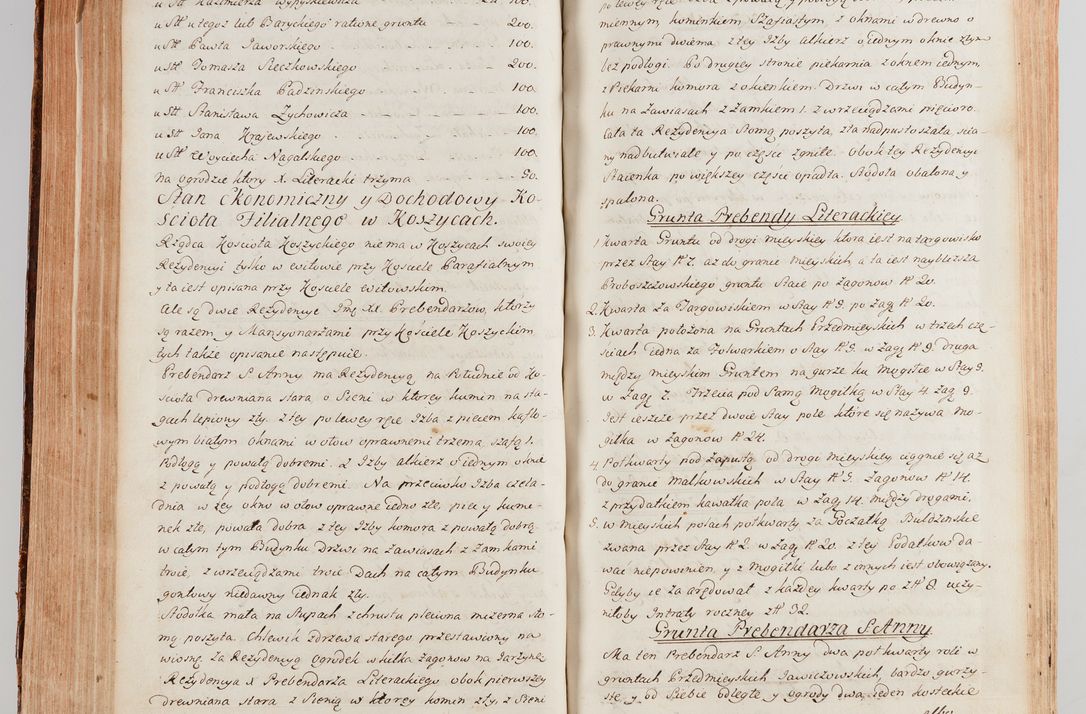 u Stt Kazimierza Wypyskiewicza - - - Za 100.
u Stt utego lub Baryckiego ratione gruntu - 200.
u Stt Pawła Jaworskiego - - - 100.
u Stt Tomasza Reczkowskiego - - - 200.
u Stt Franciszka Padzinskiego - - - 100.
u Stt Stanisława Zychowicza - - - 100.
u Stt Jana Krajewskiego - - - 100.
u Stt Woyciecha Nagalskiego - - - 100.
na ogrodzie ktory X. Literacki trzyma - - - 50.
Stan Ekonomiczny y Dochodowy Ko-
scioła Filialnego w Koszycach.
Rządca Koscioła Koszyckiego nie ma w Koszycach swoiey
Rezydencyi tylko w Witowie przy Kosciele Parafialnym
y ta iest opisana przy Kosciele Witowskim.
Ale są dwie Rezydencye Imć XX. Prebendarzow, ktorzy
są razem y Mansyonarzami przy Kosciele Koszyckim
tych także opisanie nastepuie.
Prebendarz S. Anny ma Rezydencyą na Południe od Ko-
scioła drewniana stara, o Sieni w ktorey kumin na sta-
gach lepiony zły. z tey po lewey ręce Izba z piecem kaflo-
wym białym oknami w ołow oprawnemi trzema, szafą 1.
Podłogą y powałą dobremi. Z Izby alkierz o iednym oknie
z powałą y podłogą dobremi. Na przeciwko Izba czela-
dnia w tey okno w ołow oprawne iedno złe, piec y kumi-
nek złe, powała dobra z tey Izby komora z powałą dobrą
w całym tym Budynku Drzwi na zawiasach z Zamkami
troie, z wrzeciądzami troie Dach na całym Budynku
gontowy niedawny iednak zły.
Stodołka mała na słupach z chrustu pleciona mizerna sło-
mą poszyta. Chlewik zdrzewa starego przestawiony na
wiosnę. Za Rezydencyą ogrodek w kilka zagonow na Jarzynę
Rezydencya X Prebendarza Literackiego obok pierwszey
drewniana stara z Sienią w ktorey komin zły, z Sieni
miennym kominkiem Szafiastym, z oknami w drewno o
prawnymi dwiema z tey Izby alkierz o iednym oknie złym
bez podłogi. Po drugiey stronie piekarnia z oknem iednym,
z Piekarni komora z okienkiem. Drzwi w całym Budyn-
ku na Zawiasach z Zamkiem 1. z wrzeciądzami pięcioro
Cała ta Rezydencya słomą poszyta, zła nadpustoszała, scia-
ny nadbutwiałe y po częsci zgniłe. Obok tey Rezydencyi
Staienka po większey częsci opadła. Stodoła obalona y
spalona.
Grunta Prebendy Literackiey
1. Kwarta Gruntu od drogi mieyskiey ktora iest na targowisko
przez Stay N° 7. aż do granic mieyskich a ta iest naybliższa
Proboszczowskiego gruntu Staie po zagonow N° 20.
2. Kwarta za Targowiskiem w Stay N° 9. po zag N° 20.
3. Kwarta położona na Gruntach Przedmieyskich w trzech czę-
sciach iedna za Folwarkiem o Stay N° 9. w Zag N° 9. druga
między mieyskim Gruntem na gurze ku Mogiłce w Stay 9.
w Zag 7. Trzecia pod Samą Mogiłką w Stay 4. zag 9.
Jest ieszcze przez dwoie stay pole, które się nazywa Mo-
giłka w Zagonow N° 24.
4. Połkwarty pod Zapustą, od drogi mieyskiey ciągnie się aż
do granic Malkowskich w Stay N° 9. Zagonow N° 14.
z przydatkiem kawałka pola w Zag 14. między drogami.
5. w Mieyskich polach połkwarty za Początką Buldzenskie
zwana przez Stay N° 2. w Zag N° 20. z tey Podatkow da-
wać niepowinien, y z Mogiłki lubo z innych iest obowiązany.
Gdyby ie za arędował z każdey kwarty po zł N° 8. uczy-
niłoby Intraty roczney zł N° 32.
Grunta Prebendarza S Anny
Ma ten Prebendarz S. Anny dwa poł kwarty roli w
gruntach Przedmieyskich Jawiczowskich, bardzo gurzy-
ste y od Siebie odległe y ogrody dwa, ieden kosteckie